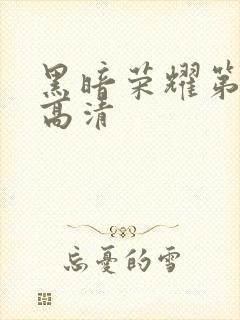 黑暗荣耀第
高清
忘憂的雪